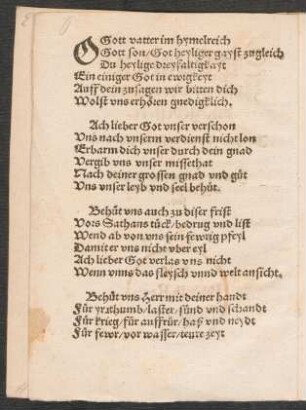 O Gott vatter im hymelreich
Gott son/Got heyliger gayst zugleich
Du heylige dreyfaltigkayt
Ein einiger Got in ewigkeyt
Auff dein zusagen wir bitten dich
Wolst vns erhören gnedigklich.
Ach lieber Got vnser verschon
Vns nach vnserm verdienst nicht lon
Erbarm dich vnser durch dein gnad
Vergib vns vnser missethat
Nach deiner grossen gnad vnd güt
Vns vnser leyb vnd seel behüt.
Behüt vns auch zu diser frist
Vors Sathans tück/bedrug vnd list
Wend ab von vns sein fewrig pfeyl
Damit er vns nicht vber eyl
Ach lieber Got verlas vns nicht
Wenn vnns das fleysch vnnd welt anficht.
Behüt vns Herr mit deiner handt
Für yrrthumb/laster/sünd vnd schandt
Für krieg/für auffrür/haß vnd neydt
Für fewr/vor wasser/teure zeyt